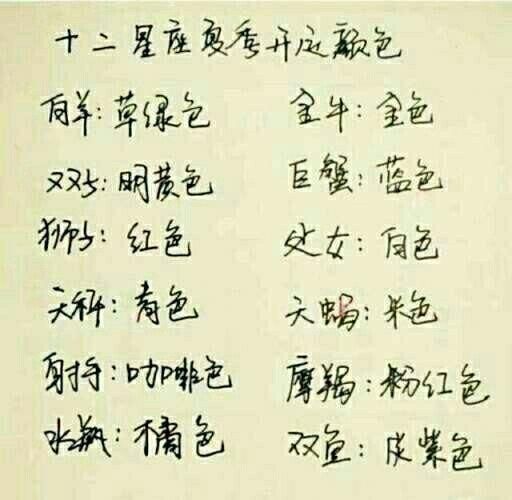 十二星座夏季开运颜色
白羊：草绿色 金牛：金色
双子：明黄色 巨蟹：蓝色
狮子：红色 处女：白色
天秤：青色 天蝎：米色
射手：咖啡色 摩羯：粉红色
水瓶：橘色 双鱼：皮紫色